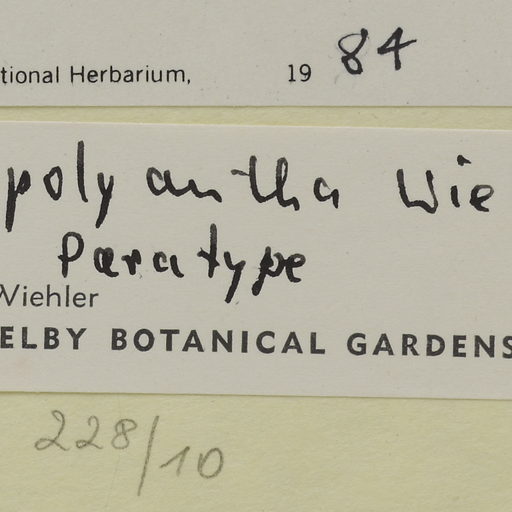 tional Herbarium, 19 84
polyantha Wie
Paratype
Wiehler
ELBY BOTANICAL GARDENS
228/10